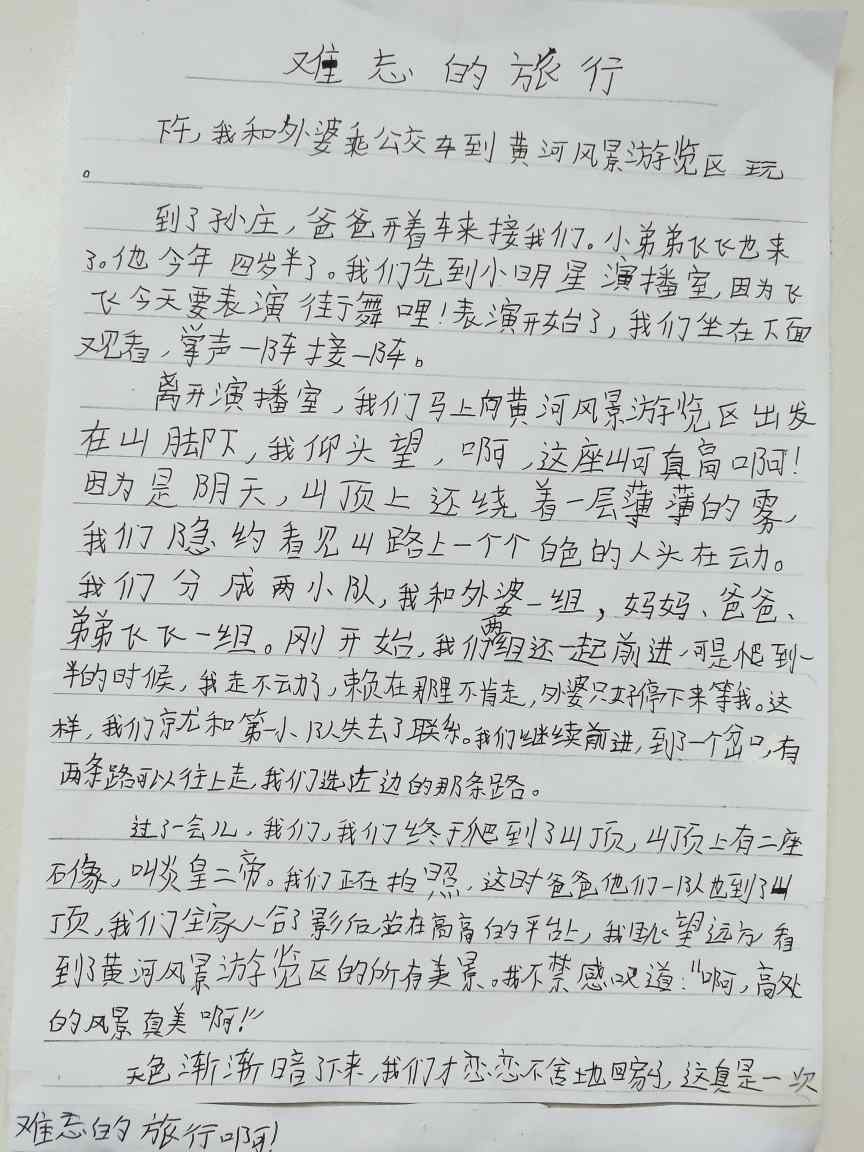 难忘的旅行
下午,我和外婆乘公交车到黄河风景游览区玩
。
到了孙庄,爸爸开着车来接我们。小弟弟飞飞也来
了。他今年四岁半了。我们先到小明星演播室,因为飞
飞今天要表演街舞哩!表演开始了,我们坐在下面
观看,掌声一阵接一阵。
离开演播室,我们马上向黄河风景游览区出发
在山脚下,我仰头望,啊,这座山可真高啊!
因为是阴天,山顶上还绕着一层薄薄的雾,
我们隐约看见山路上一个个白色的人头在动。
我们分成两小队,我和外婆一组,妈妈、爸爸、
弟弟飞飞一组。刚开始,我们两组还一起前进,可是爬到一
半的时候,我走不动了,赖在那里不肯走,外婆只好停下来等我。这
样,我们就和第一小队失去了联络。我们继续前进,到了一个岔口,有
两条路可以往上走,我们选左边的那条路。
过了一会儿,我们,我们终于爬到了山顶,山顶上有二座
石像,叫炎皇二帝。我们正在拍照,这时爸爸他们一队也到了山
顶,我们全家人合了影后站在高高的平台上,我眺望远方看
到了黄河风景游览区的所有美景。我不禁感叹道:"啊,高处
的风景真美啊!"
天色渐渐暗了下来,我们才恋恋不舍地回家了,这真是一次
难忘的旅行啊!